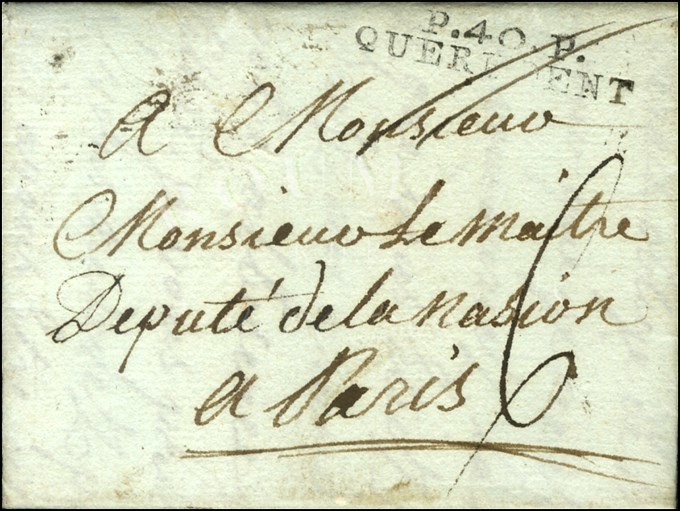 P.40.P.
QUERHOENT
A Monsieur
Monsieur Le maitre
Deputé de la nasion
a Paris
6